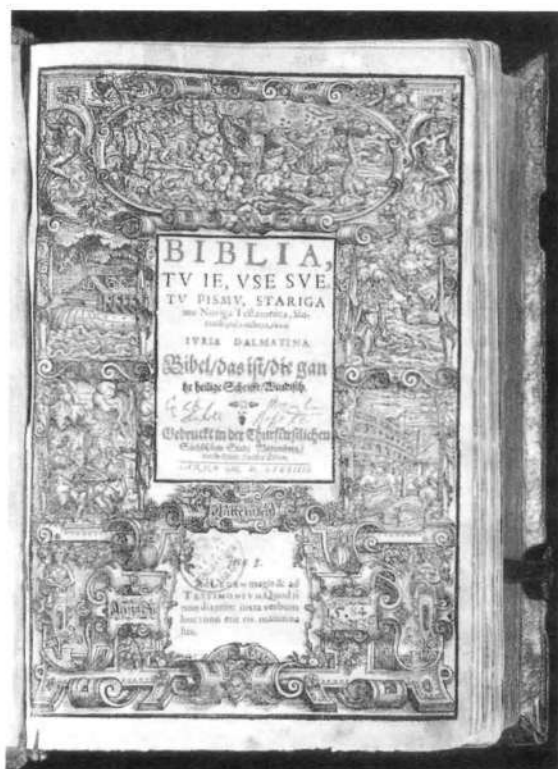 BIBLIA,
TV IE, VSE SVE.
TV PISMV, STARIGA
inu Noviga Testamenta, Slo-
IVRIA DALMATINA.
Bibel / das ist / die gan
tze heilige Schrifft / Windisch.
Gedruckt in der Churfürstlichen
Sächsischen Stadt Wittemberg /
Wittemberg
LEGEM magis & ad
TESTIMONIVM. Quod si
non dixerint iuxta verbum
hoc, non erit eis matutina
lux.
Anno
15.84